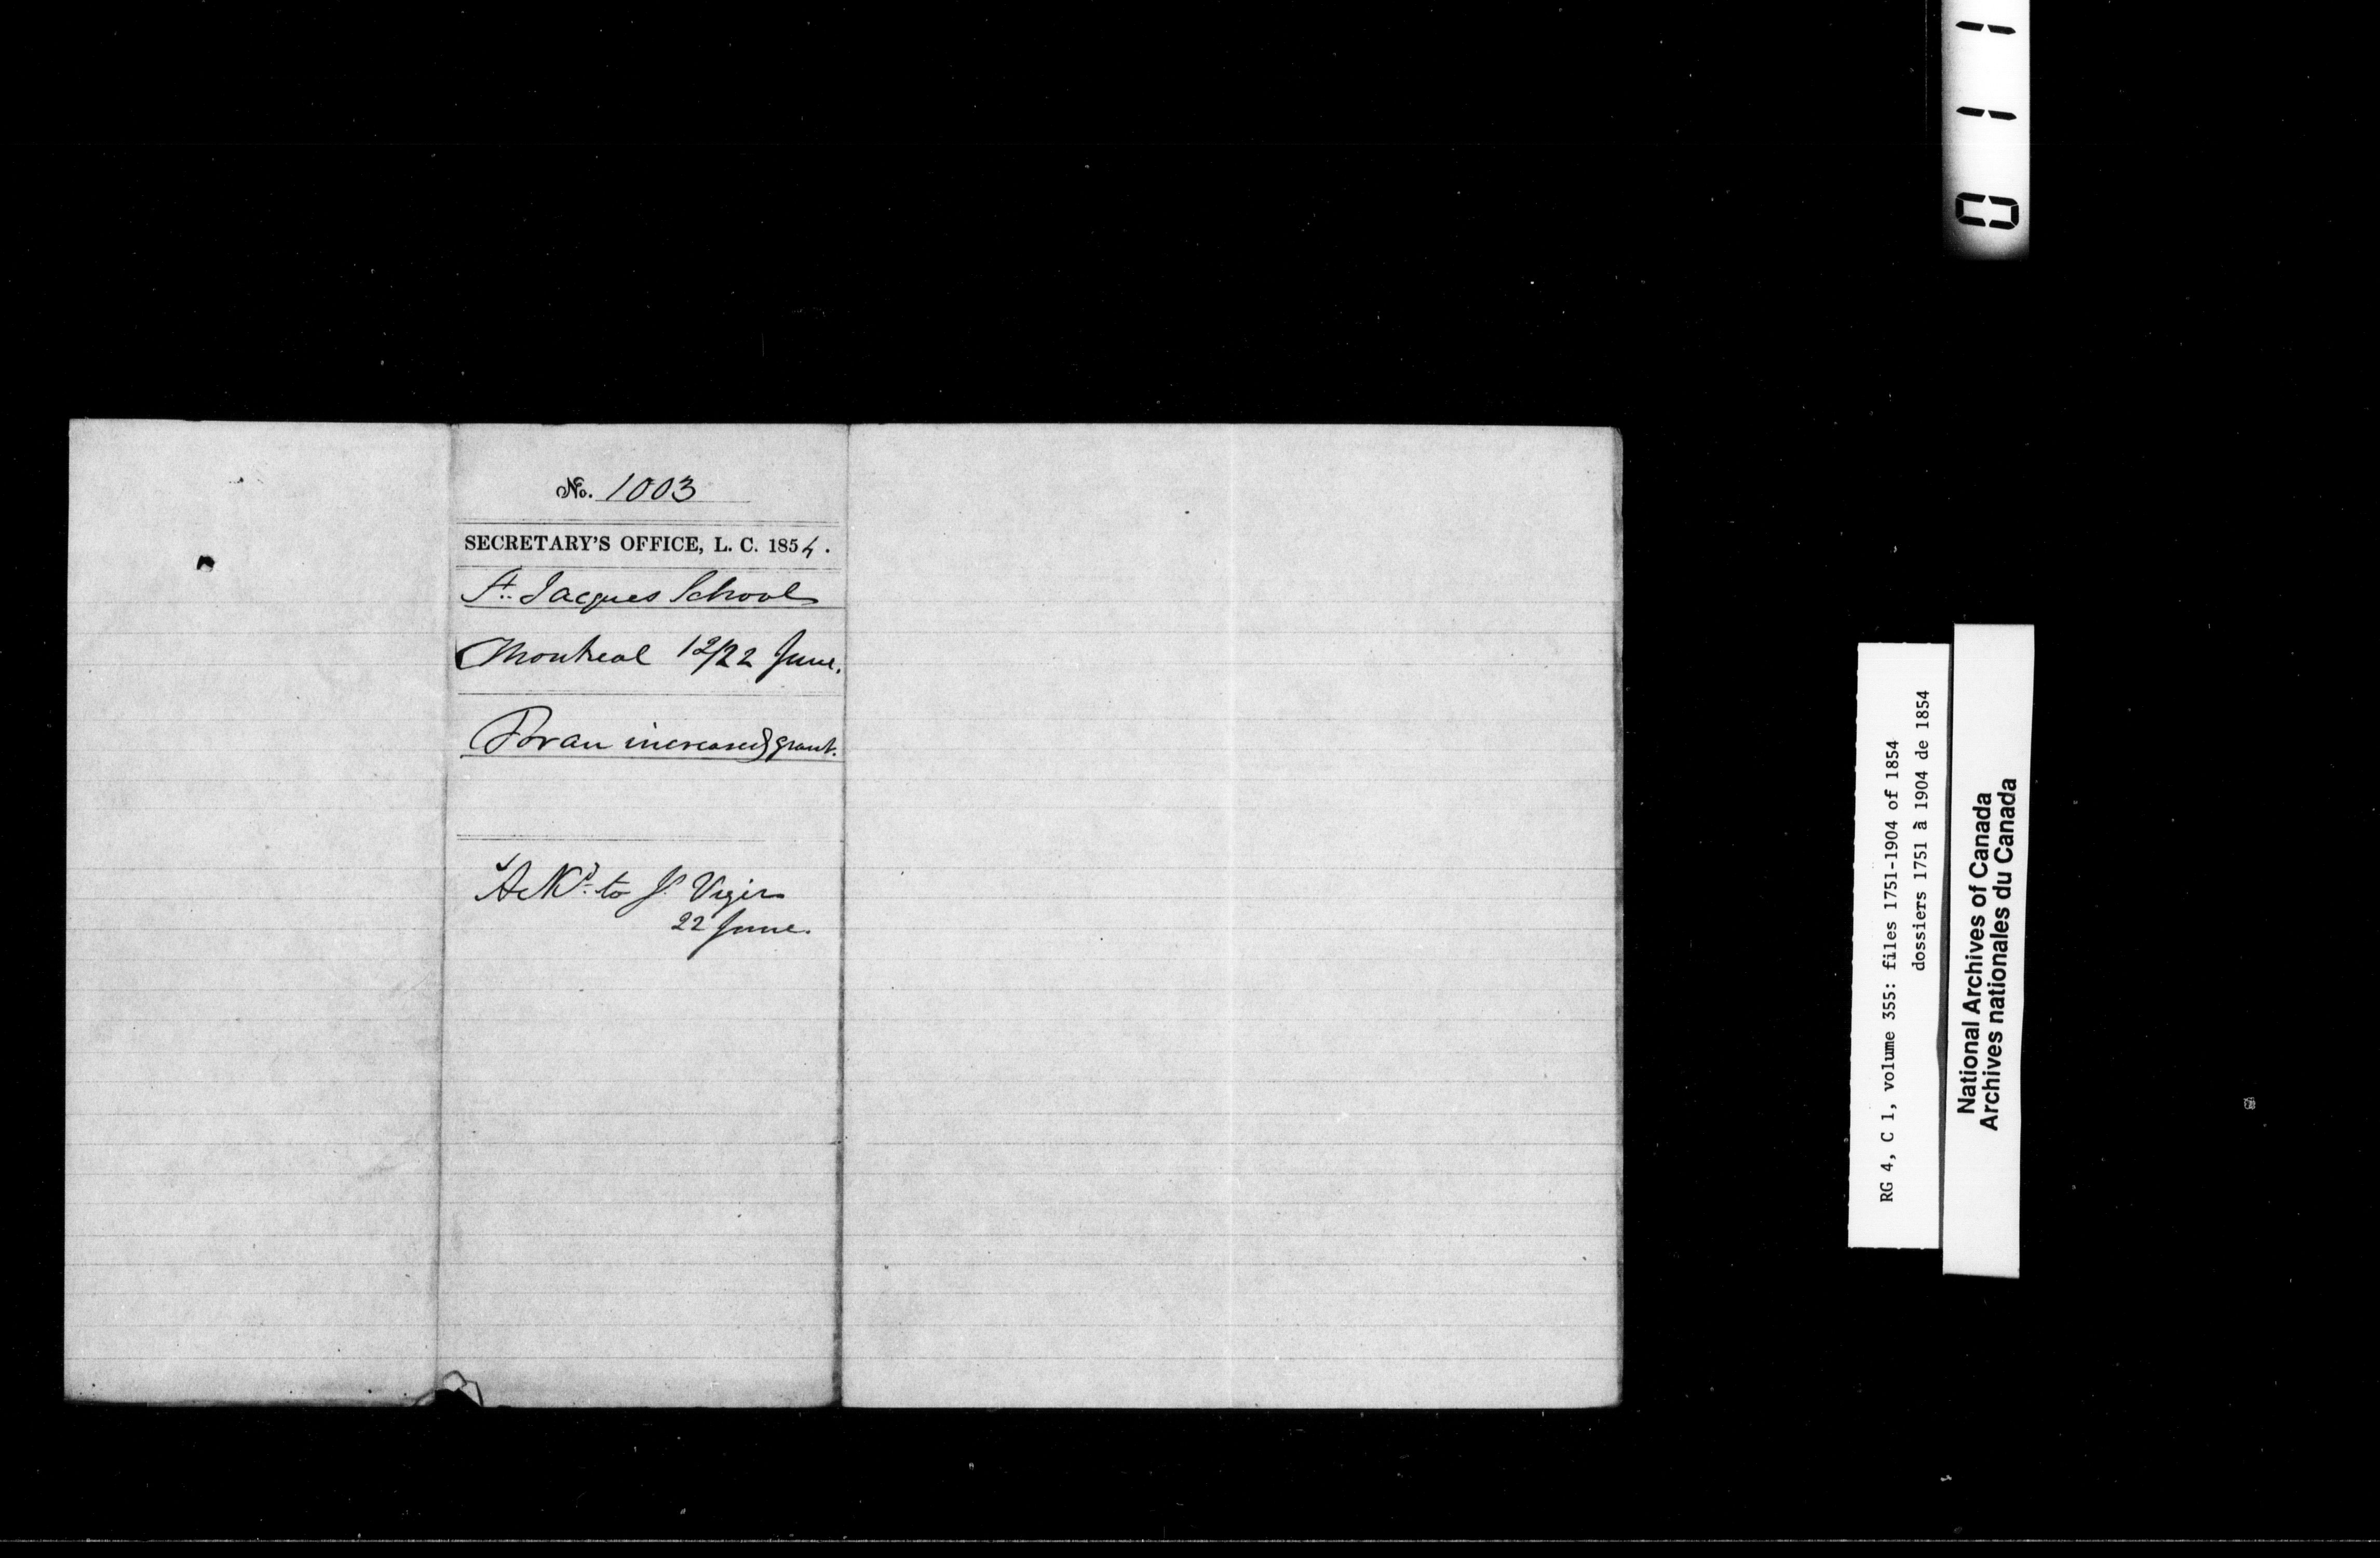 No. 1003
SECRETARY'S OFFICE, L. C. 1854.
St. Jacques School
Montreal 12/22 June.
For an increased grant.
Ackd. to J. Viger
22 June.
RG 4, C 1, volume 355: files 1751-1904 of 1854
dossiers 1751 à 1904 de 1854
National Archives of Canada
Archives nationales du Canada
0 1 1